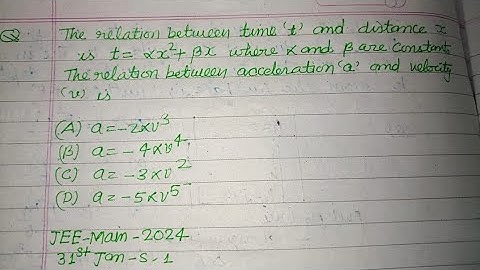 Q The relation between time 't' and distance x
is t = αx² + βx where α and β are constant
The relation between acceleration 'a' and velocity
(v) is
(A) a = -2αv³
(B) a = -4αv⁴
(C) a = -3αv²
(D) a = -5αv⁵
JEE-Main-2024
31st Jan-S-1